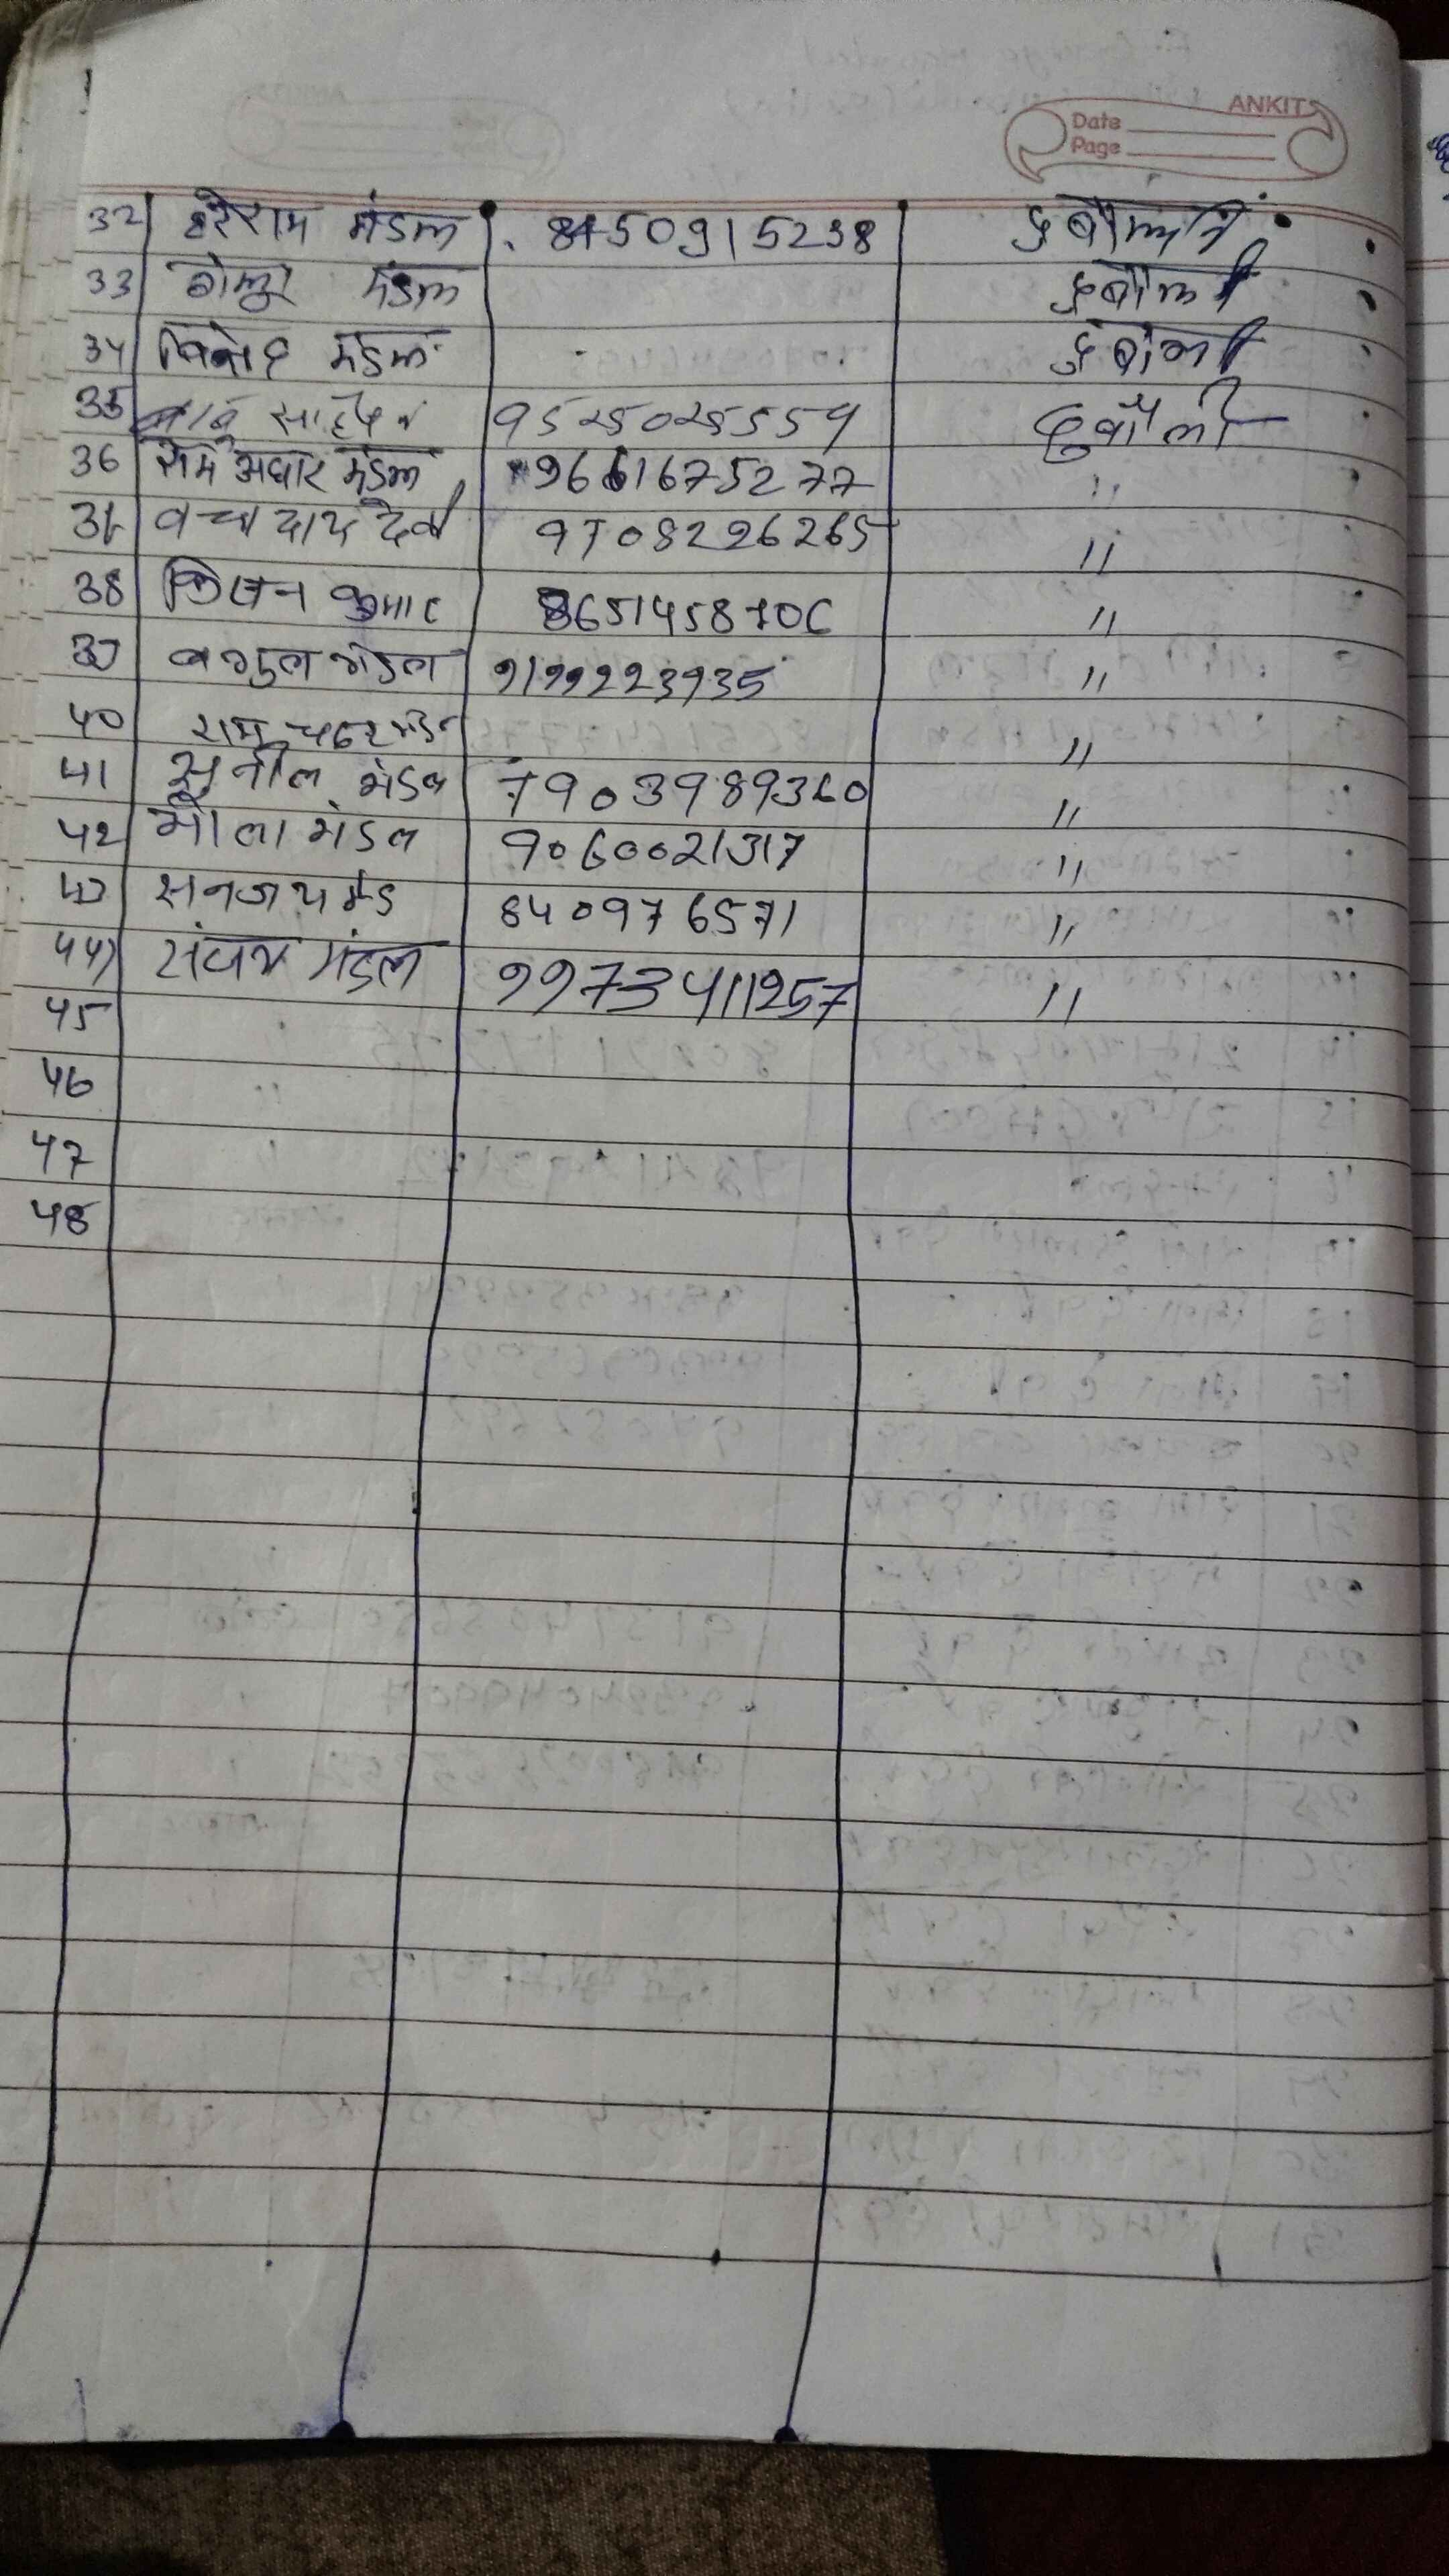 ANKIT
Date
Page
32 हरेराम मंडल 8450915238 दुबौली
33 मंडल दुबौली
34 विनोद मंडल दुबौली
35 बाबु साहेब 9525025559 दुबौली
36 राम अधार मंडल 9661675277 "
37 वच्चा दाय देवी 9708226265 "
38 किसन कुमार 8651458706 "
39 मंडल 9199223935 "
40 राम चन्दर मंडल "
41 सुनील मंडल 7903989360 "
42 भोला मंडल 9060021317 "
43 सनजय मंड 8409766571 "
44) संजय मंडल 9973411257 "
45
46
47
48